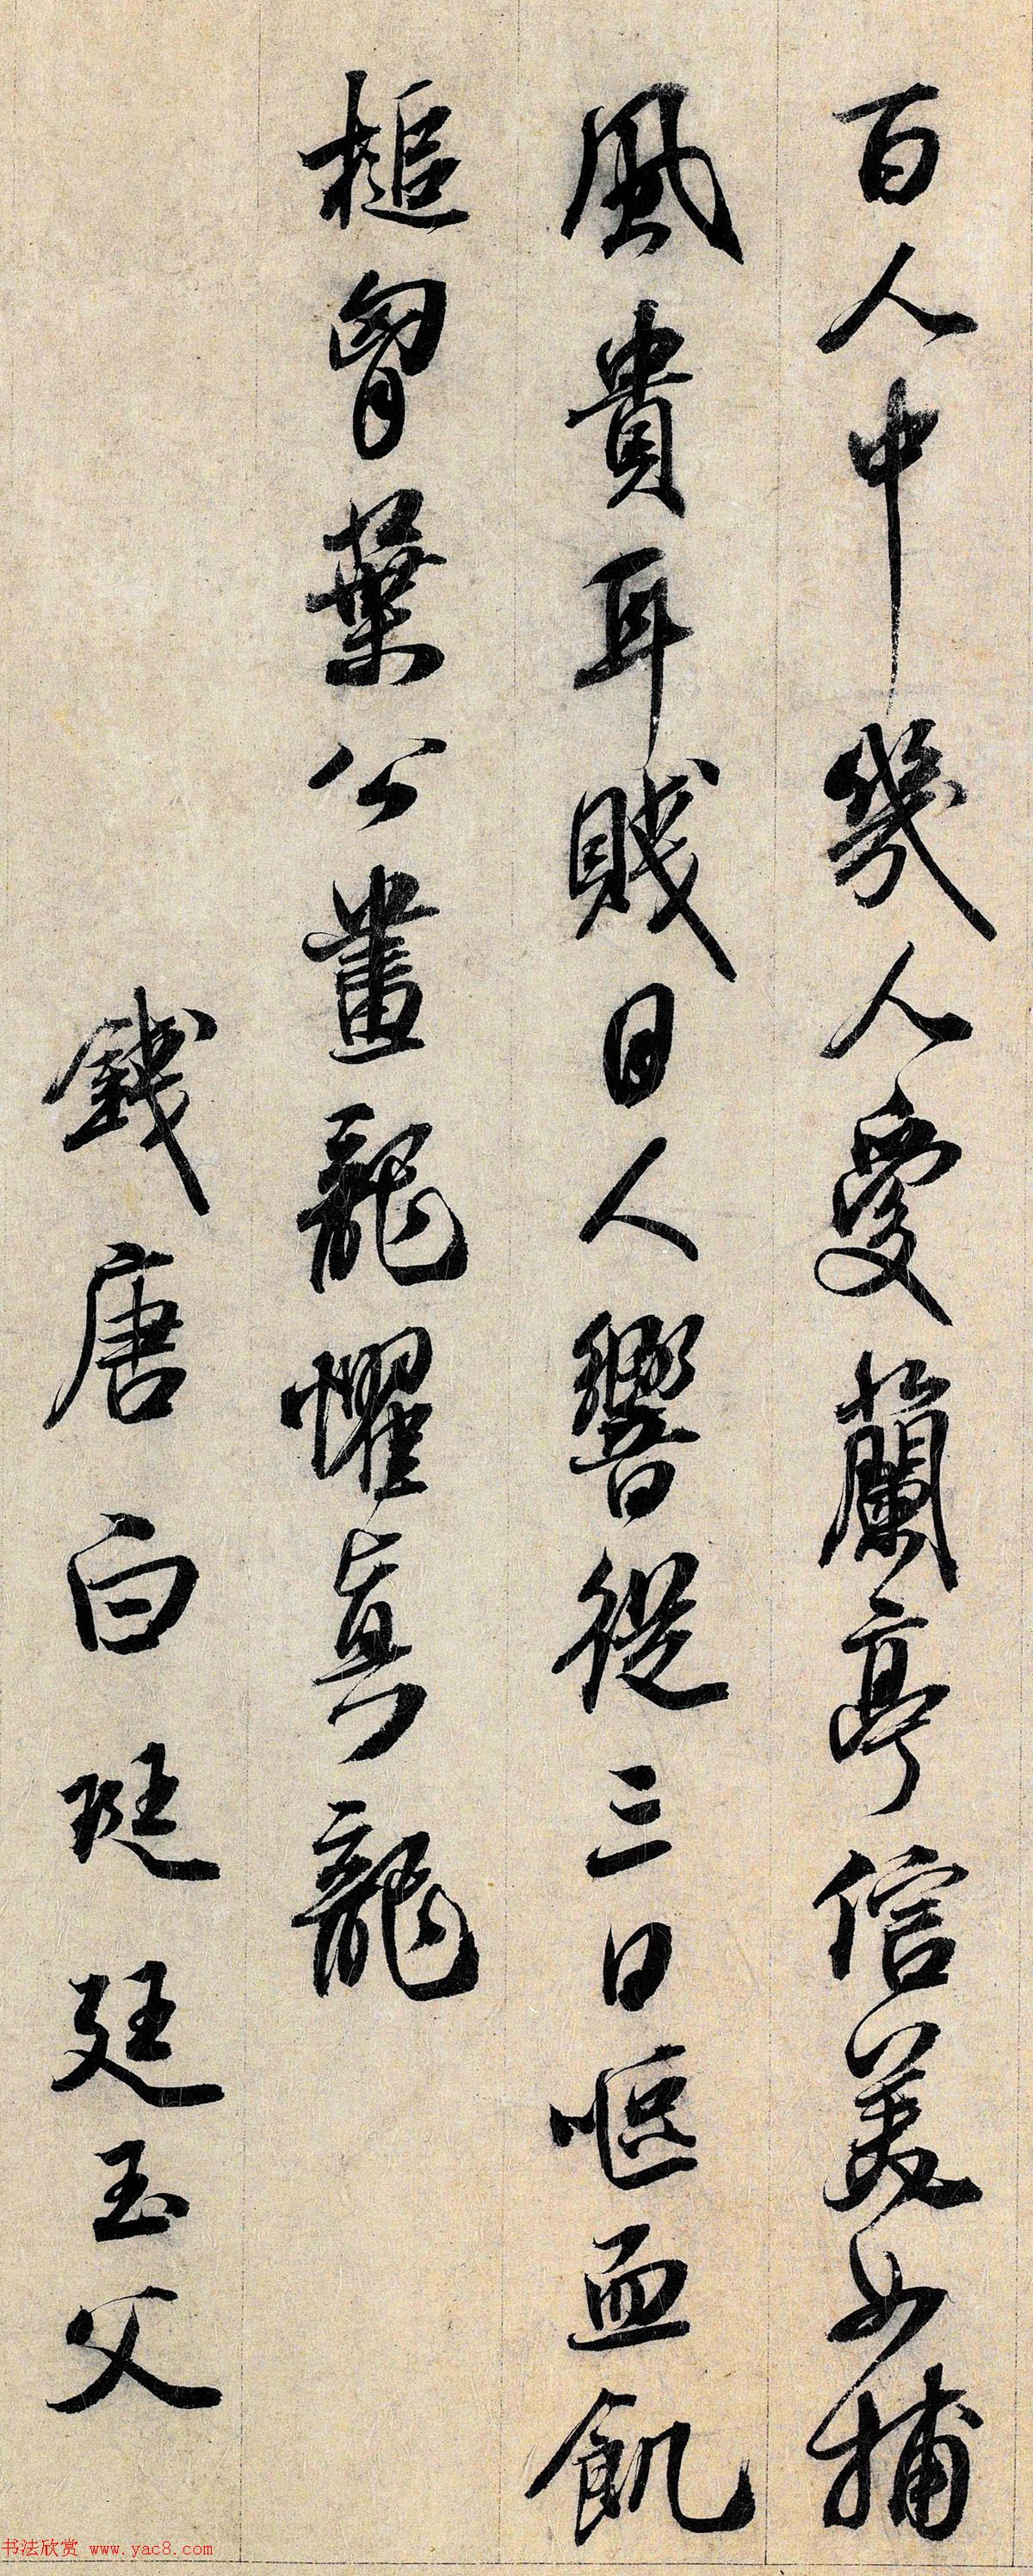 百人中幾人愛蘭亭信美如捕
風貴耳賤目人響從三日嘔血飢
槌胷葉公畫龍懼真龍
錢唐白珽廷玉父
书法欣赏 www.yac8.com